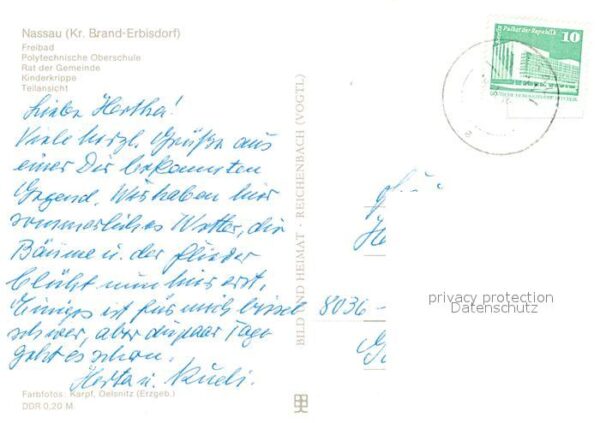 Nassau (Kr. Brand-Erbisdorf)
Freibad
Polytechnische Oberschule
Rat der Gemeinde
Kinderkrippe
Teilansicht
Liebe Hertha!
Viele herzl. Grüße aus
einer Dir bekannten
Gegend. Wir haben hier
sommerliches Wetter, die
Bäume u. der Flieder
blüht nun hier erst.
Einiges ist für mich
schwer, aber die paar Tage
geht es schon.
Herta u. Rudi.
Farbfotos: Karpf, Oelsnitz (Erzgeb.)
DDR 0,20 M
BILD UND HEIMAT · REICHENBACH (VOGTL)
Palast der Republik
10
8036 -
privacy protection
Datenschutz